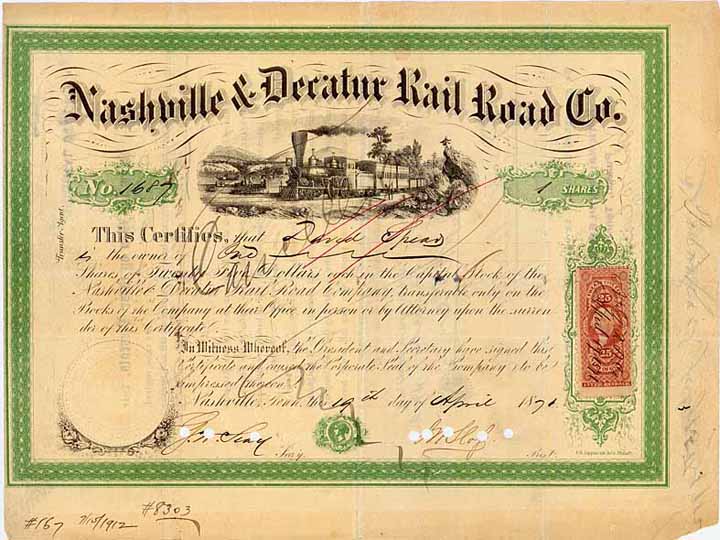 Nashville & Decatur Rail Road Co.
No. 1687
1 SHARES
Transfer Agent.
This Certifies, that David Spear
is the owner of One
Shares of Twenty Five Dollars each in the Capital Stock of the
Nashville & Decatur Rail Road Company, transferable only on the
Books of the Company at their Office in person or by Attorney upon the surren
der of this Certificate.
In Witness Whereof, the President and Secretary have signed this
Certificate and caused the Corporate Seal of the Company to be
impressed hereon.
Nashville, Tenn. the 19th day of April 1871.
Secy.
Prest.
25
25
#167 7/15/1912 #8303